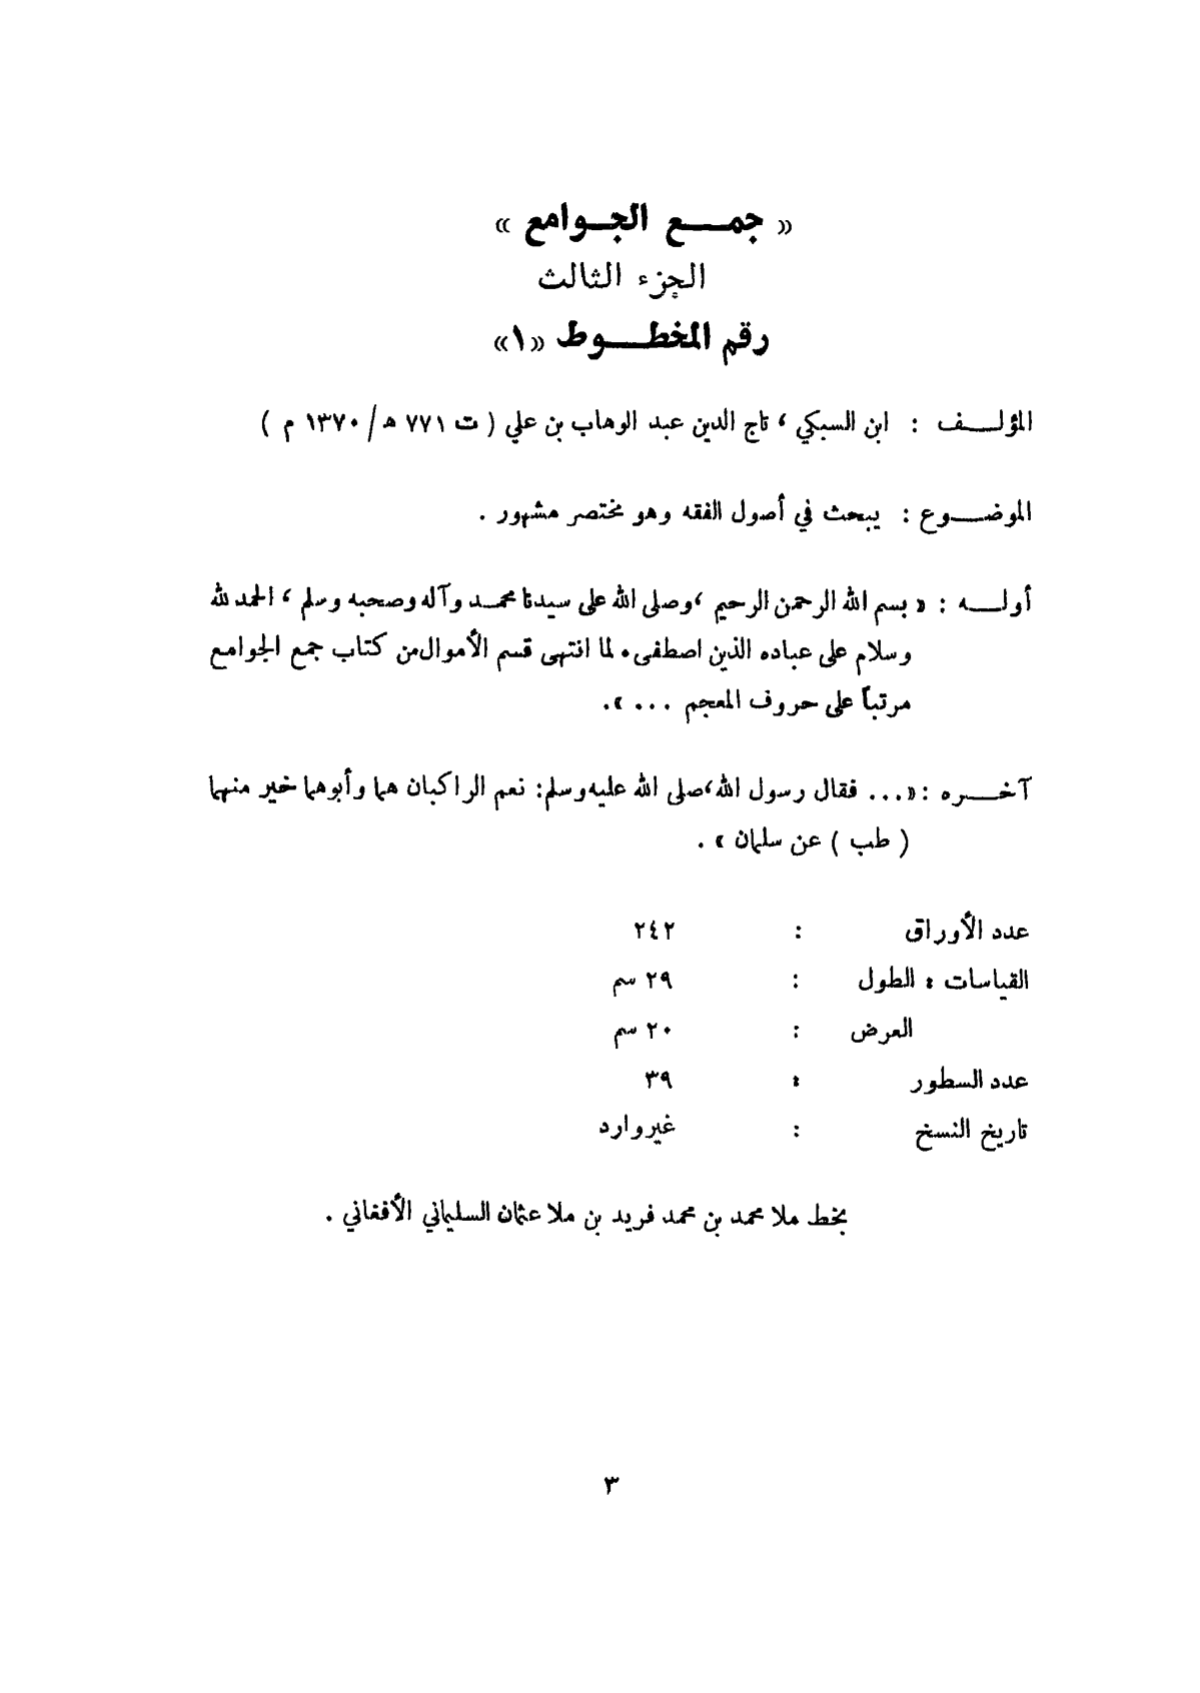 « جمـــع الجـوامع »
الجزء الثالث
رقم المخطـــوط «١»
المؤلــف : ابن السبكي ، تاج الدين عبد الوهاب بن علي ( ت ٧٧١ ه / ١٣٧٠ م )
الموضــوع : يبحث في أصول الفقه وهو مختصر مشهور .
أولــه : « بسم الله الرحمن الرحيم ، وصلى الله على سيدنا محمـد وآله وصحبه وسلم ، الحمد لله
وسلام على عباده الذين اصطفى . لما انتهى قسم الأموال من كتاب جمع الجوامع
مرتباً على حروف المعجم ... » .
آخــره : « ... فقال رسول الله ، صلى الله عليه وسلم : نعم الراكبان هما وأبوهما خير منهما
( طب ) عن سلمان » .
عدد الأوراق : ٢٤٢
القياسات : الطول : ٢٩ سم
العرض : ٢٠ سم
عدد السطور : ٣٩
تاريخ النسخ : غير وارد
بخط ملا محمد بن محمد فريد بن ملا عثمان السليماني الأفغاني .
٣